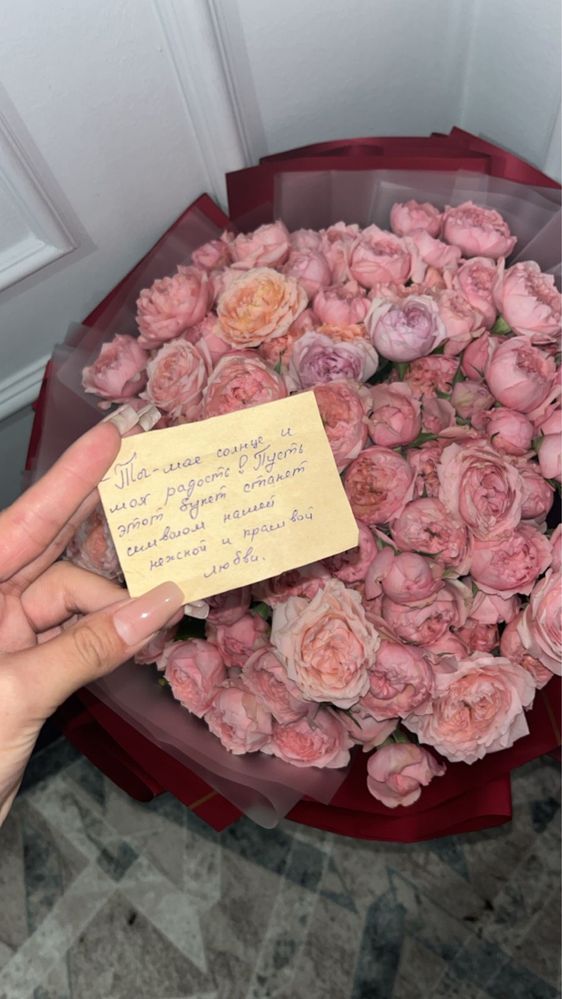 - Ты - мое солнце и
моя радость! Пусть
этот букет станет
символом нашей
нежной и красивой
любви.